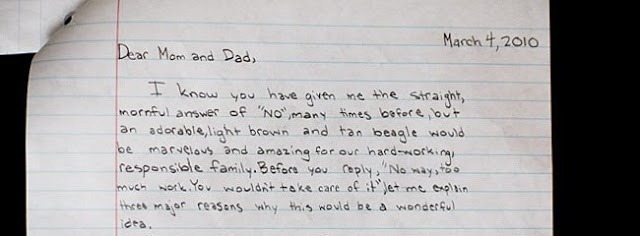 March 4, 2010
Dear Mom and Dad,
I know you have given me the straight,
mornful answer of "NO", many times before, but
an adorable, light brown and tan beagle would
be marvelous and amazing for our hard-working,
responsible family. Before you reply, "No way, too
much work. You wouldn't take care of it" let me explain
three major reasons why this would be a wonderful
idea.